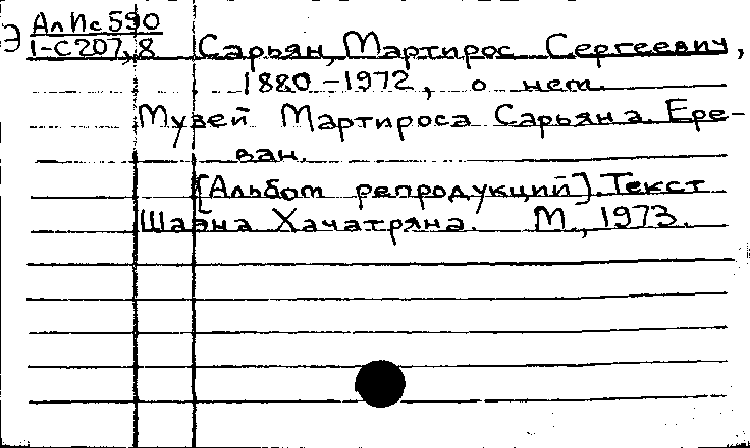 Э АлИс590
1-С207,8 Сарьян, Мартирос Сергеевич,
1880-1972, о нем.
Музей Мартироса Сарьяна. Ере-
ван.
[Альбом репродукций]. Текст
Шаэна Хачатряна. М., 1973.